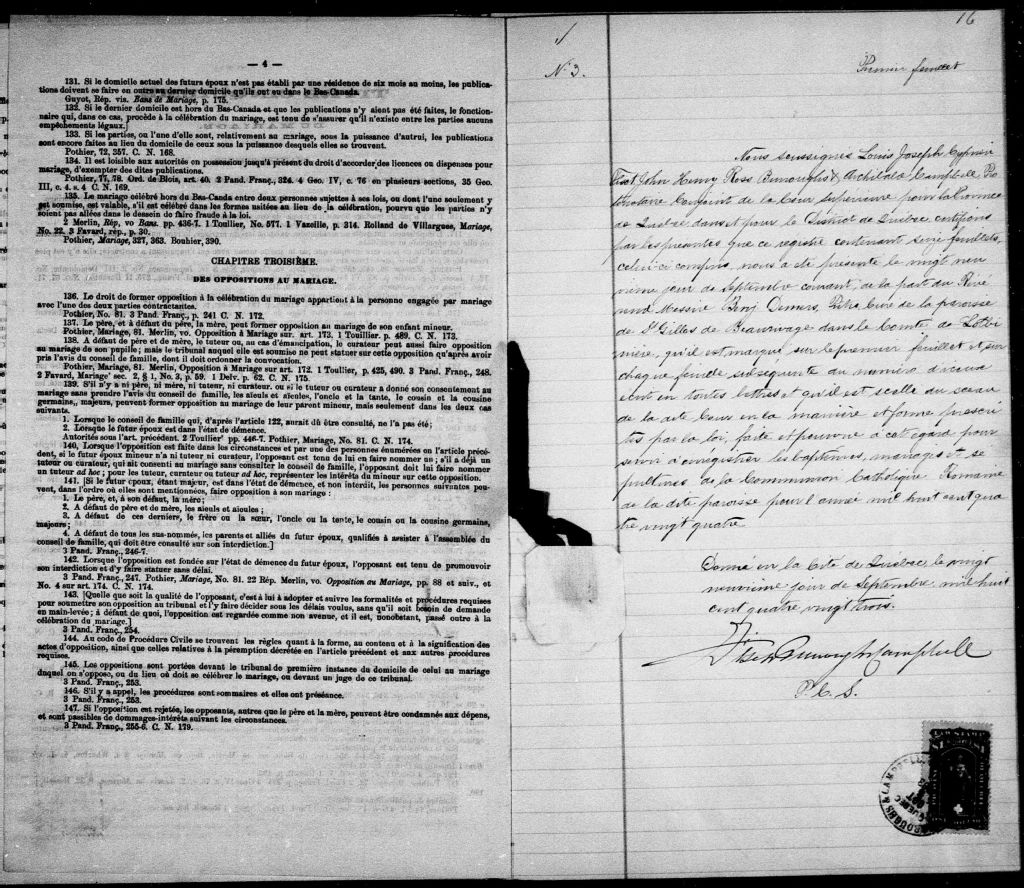 — 4 —
131. Si le domicile actuel des futurs époux n'est pas établi par une résidence de six mois au moins, les publica-
tions doivent se faire en outre au dernier domicile qu'ils ont eu dans le Bas-Canada.
Guyot, Rép. vis. Bans de Mariage, p. 175.
132. Si le dernier domicile est hors du Bas-Canada et que les publications n'y aient pas été faites, le fonction-
naire qui, dans ce cas, procède à la célébration du mariage, est tenu de s'assurer qu'il n'existe entre les parties aucuns
empêchements légaux.]
133. Si les parties, ou l'une d'elles sont, relativement au mariage, sous la puissance d'autrui, les publications
sont encore faites au lieu du domicile de ceux sous la puissance desquels elles se trouvent.
Pothier, 72, 357. C. N. 168.
134. Il est loisible aux autorités en possession jusqu'à présent du droit d'accorder des licences ou dispenses pour
mariage, d'exempter des dites publications.
Pothier, 77, 78. Ord. de Blois, art. 40. 2 Pand. Franç., 324. 4 Geo. IV, c. 76 en plusieurs sections, 35 Geo.
III, c. 4. s. 4 C. N. 169.
135. Le mariage célébré hors du Bas-Canda entre deux personnes sujettes à ses lois, ou dont l'une seulement y
est soumise, est valable, s'il est célébré dans les formes usitées au lieu de la célébration, pourvu que les parties n'y
soient pas allées dans le dessein de faire fraude à la loi.
2 Merlin, Rép, vo Bans. pp. 436-7. 1 Toullier, No. 577. 1 Vazeille, p. 314. Rolland de Villargues, Mariage,
No. 22. 3 Favard, rép., p. 30.
Pothier, Mariage, 327, 363. Bouhier, 390.
CHAPITRE TROISIÈME.
DES OPPOSITIONS AU MARIAGE.
136. Le droit de former opposition à la célébration du mariage appartient à la personne engagée par mariage
avec l'une des deux parties contractantes.
Pothier, No. 81. 3 Pand. Franç., p. 241 C. N. 172.
137. Le père, et à défaut du père, la mère, peut former opposition au mariage de son enfant mineur.
Pothier, Mariage, 81. Merlin, vo. Opposition à Mariage sur. art. 173, 1 Touillier. p. 489. C. N. 173.
138. A défaut de père et de mère, le tuteur ou, au cas d'émancipation, le curateur peut aussi faire opposition
au mariage de son pupille; mais le tribunal auquel elle est soumise ne peut statuer sur cette opposition qu'après avoir
pris l'avis du conseil de famille, dont il doit ordonner la convocation.
Pothier, Mariage, 81. Merlin, Opposition à Mariage sur art. 172. 1 Toullier, p. 425, 490. 3 Pand. Franç., 248.
2 Favard, Mariage' sec. 2, § 1, No. 3, p. 59. 1 Delv. p. 62. C. N. 175.
139. S'il n'y a ni père, ni mère, ni tuteur, ni curateur. ou si le tuteur ou curateur a donné son consentement au
mariage sans prendre l'avis du conseil de famille, les aïeuls et aïeules, l'oncle et la tante, le cousin et la cousine
germains, majeurs, peuvent former opposition au mariage de leur parent mineur, mais seulement dans les deux cas
suivants.
1. Lorsque le conseil de famille qui, d'après l'article 122, aurait dû être consulté, ne l'a pas été;
2. Lorsque le futur époux est dans l'état de démence.
Autorités sous l'art. précédent. 2 Toullier' pp. 446-7. Pothier, Mariage, No. 81. C. N. 174.
140. Lorsque l'opposition est faite dans les circonstances et par une des personnes énumérées en l'article précé-
dent, si le futur époux mineur n'a ni tuteur ni curateur, l'opposant est tenu de lui en faire nommer un; s'il a déjà un
tuteur ou curateur, qui ait consenti au mariage sans consulter le conseil de famille, l'opposant doit lui faire nommer
un tuteur ad hoc; pour les tuteur, curateur ou tuteur ad hoc, représenter les intérêts du mineur sur cette opposition.
141. [Si le futur époux, étant majeur, est dans l'état de démence, et non interdit, les personnes suivantes peu-
vent, dans l'ordre où elles sont mentionnées, faire opposition à son mariage:
1. Le père, et, à son défaut, la mère;
2. A défaut de père et de mère, les aïeuls et aïeules;
3. A défaut de ces derniers, le frère ou la sœur, l'oncle ou la tante, le cousin ou la cousine germains,
majeurs;
4. A défaut de tous les sus-nommés, les parents et alliés du futur époux, qualifiés à assister à l'assemblée du
conseil de famille, qui doit être consulté sur son interdiction.]
3 Pand. Franç., 246-7.
142. Lorsque l'opposition est fondée sur l'état de démence du futur époux, l'opposant est tenu de promouvoir
son interdiction et d'y faire statuer sans délai.
3 Pand. Franç., 247. Pothier, Mariage, No. 81. 22 Rép. Merlin, vo. Opposition au Mariage, pp. 88 et suiv., et
No. 4 sur art. 174. C. N. 174.
143. [Quelle que soit la qualité de l'opposant, c'est à lui à adopter et suivre les formalités et procédures requises
pour soumettre son opposition au tribunal et l'y faire décider sous les délais voulus, sans qu'il soit besoin de demande
en main-levée; à défaut de quoi, l'opposition est regardée comme non avenue, et il est, nonobstant, passé outre à la
célébration du mariage.]
3 Pand. Franç., 254.
144. Au code de Procédure Civile se trouvent les règles quant à la forme, au contenu et à la signification des
actes d'opposition, ainsi que celles relatives à la péremption décrétée en l'article précédent et aux autres procédures
requises.
145. Les oppositions sont portées devant le tribunal de première instance du domicile de celui au mariage
duquel on s'oppose, ou du lieu où doit se célébrer le mariage, ou devant un juge de ce tribunal.
3 Pand. Franç., 253.
146. S'il y a appel, les procédures sont sommaires et elles ont préséance.
3 Pand. Franç., 253.
147. Si l'opposition est rejetée, les opposants, autres que le père et la mère, peuvent être condamnés aux dépens,
et sont passibles de dommages-intérêts suivant les circonstances.
3 Pand. Franç., 255-6. C. N. 179.
16
No 3.
Premier feuillet
Nous soussignés Louis Joseph Cyprien
Fiset John Henry Ross Burroughs & Archibald Campbell Pro
tonotaire Conjoint de la Cour Supérieure pour la Province
de Québec dans et pour le District de Québec certifions
par les présentes que ce registre contenant seize feuillets,
celui ci compris, nous a été présenté le vingt neu
vième jour de Septembre courant, de la part du Révé
rend Messire Benj. Demers, Ptre Curé de la paroisse
de St Gilles de Beaurivage dans le Comté de Lotbi
nière, qu'il est marqué sur le premier feuillet et sur
chaque feuillet subséquent du numéro d'iceux
écrit en toutes lettres et qu'il est scellé du sceau
de la dite Cour en la manière et forme prescri
tes par la loi, faite et pourvue à cet égard pour
servir à enregistrer les baptêmes, mariages et sé
pultures de la Communion Catholique Romaine
de la dite paroisse pour l'année mil huit cent qua
tre vingt quatre
Donné en la Cité de Québec le vingt
neuvième jour de Septembre mil huit
cent quatre vingt trois.
Fiset Burroughs Campbell
P. C. S.
LAW STAMP
$1 $1
QUEBEC